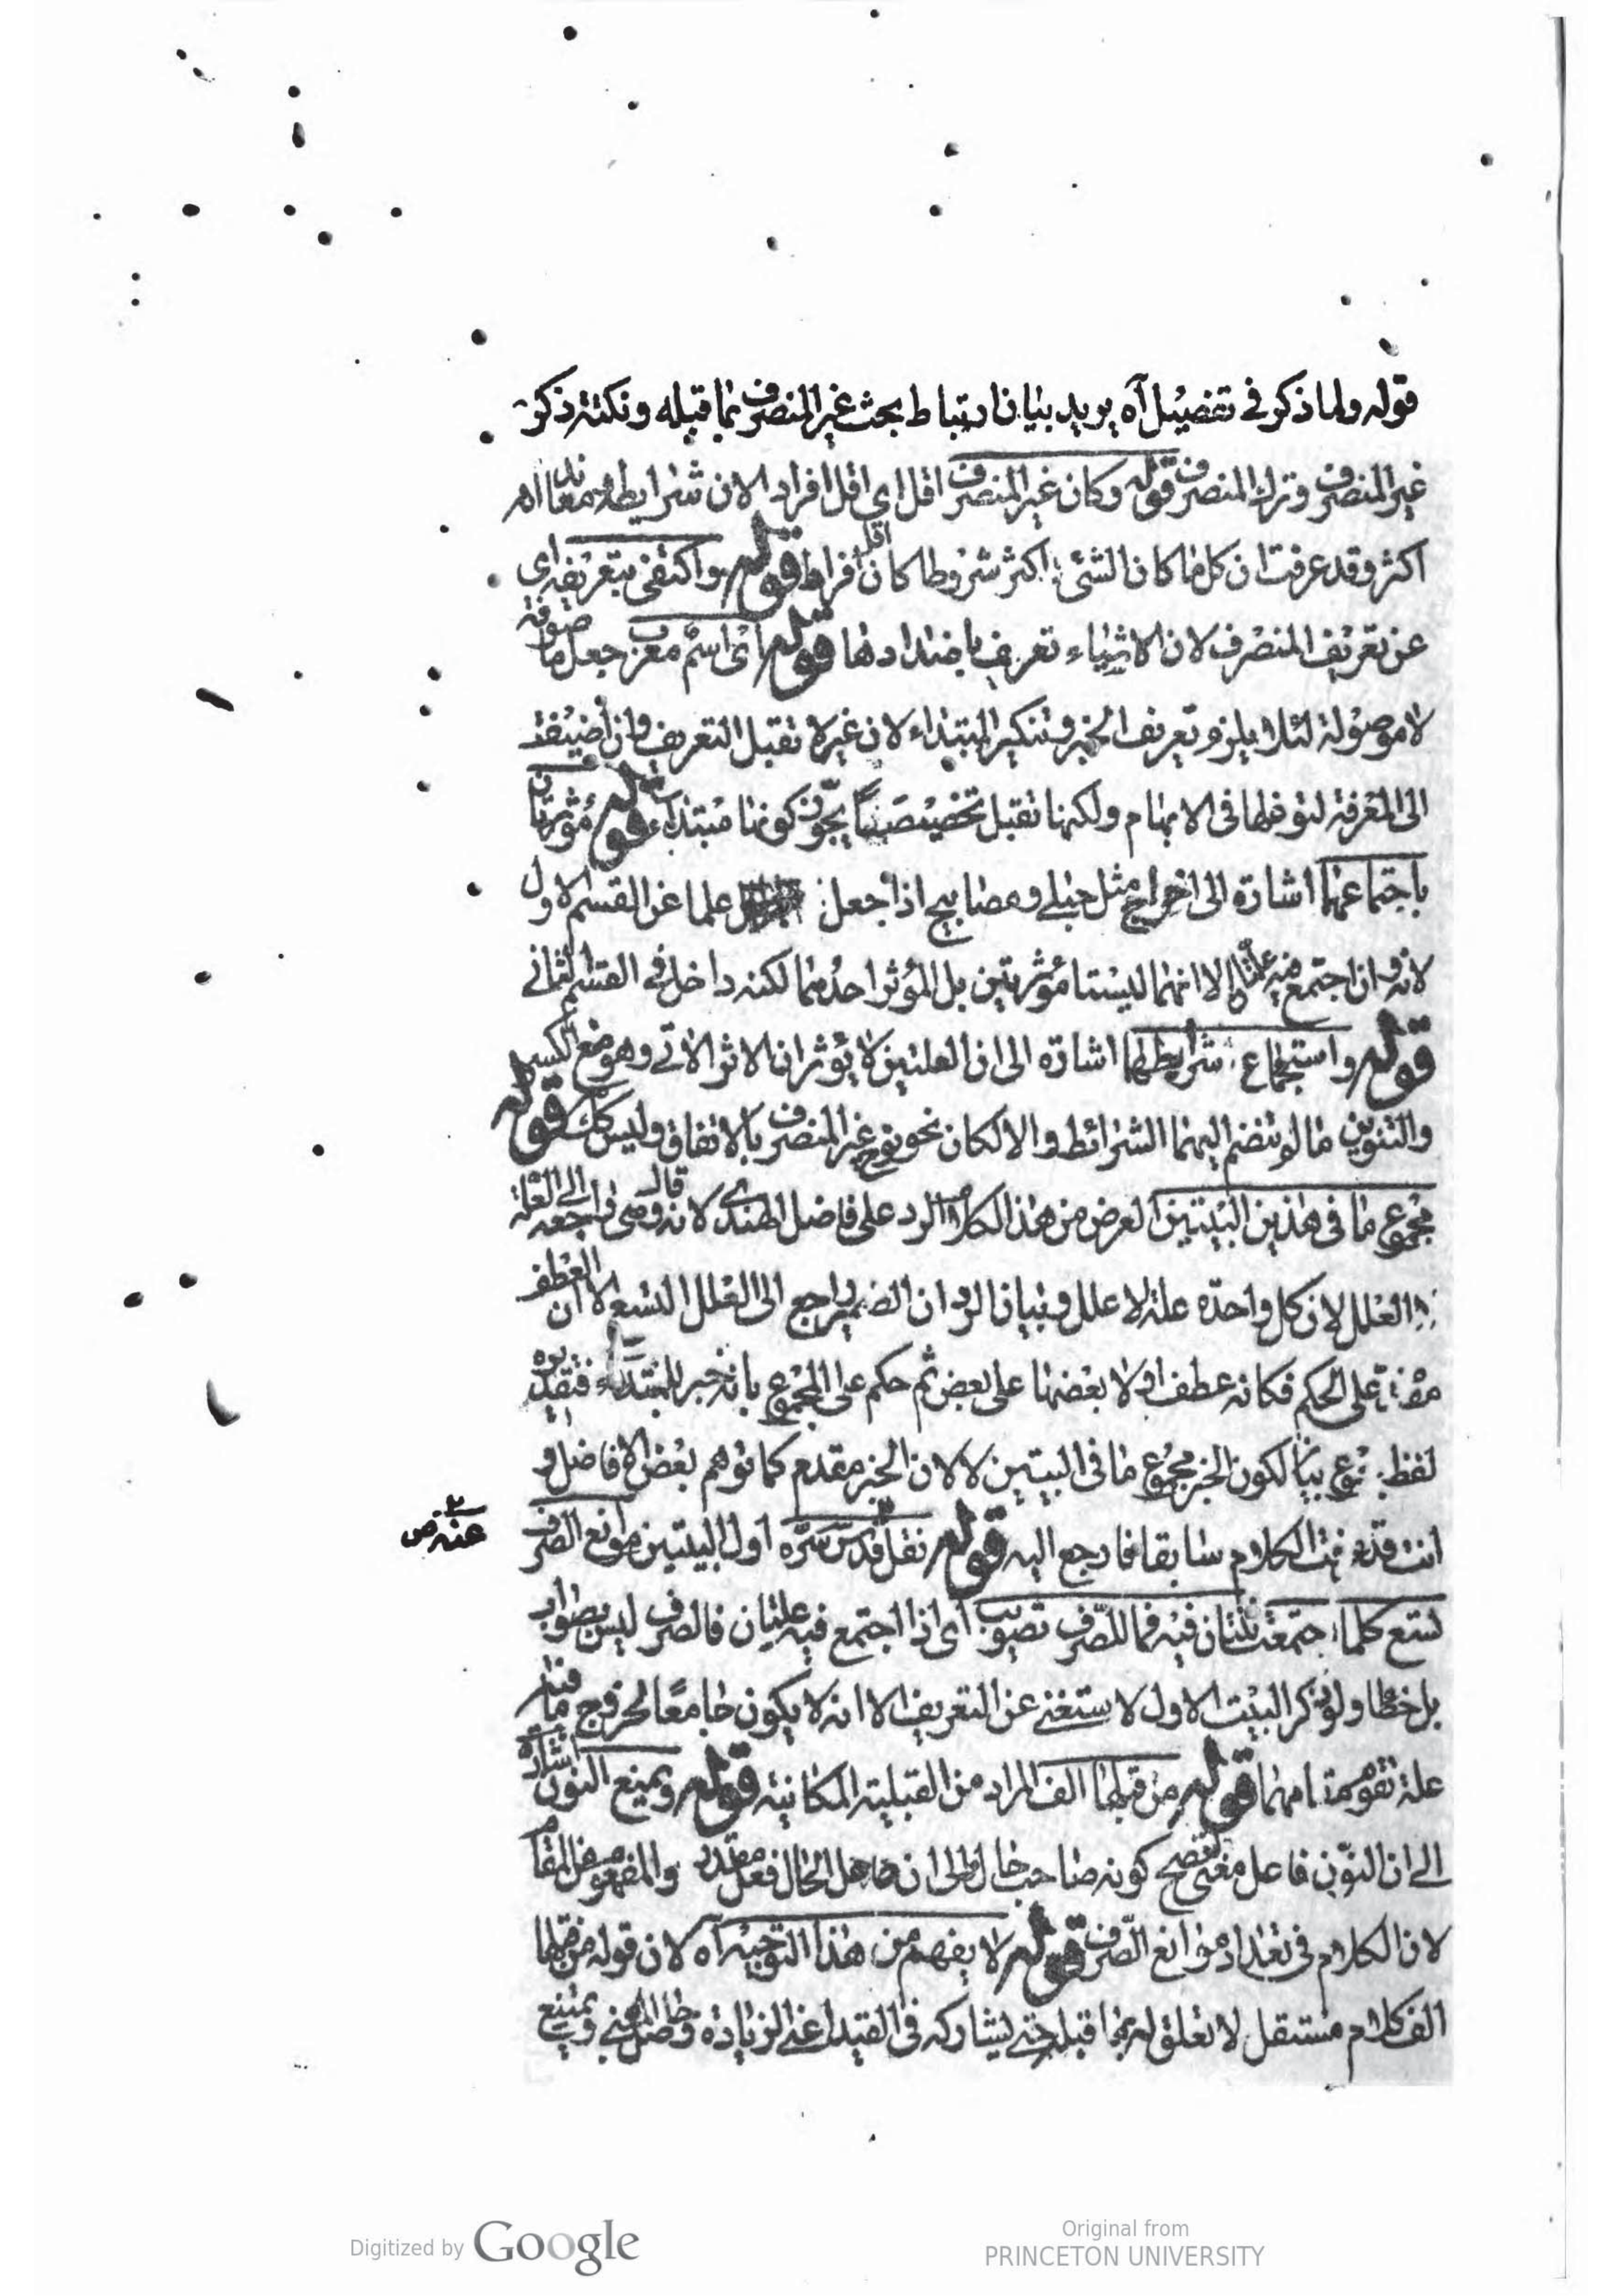 قوله ولما ذكر في تفصيل آه يريد بيان ارتباط بحث غير المنصرف بما قبله ونكتة ذكر
غير المنصرف وترك المنصرف قوله وكان غير المنصرف اقل اي اقل افرادا لان شرايطه
اكثر وقد عرفت ان كل ما كان الشئ اكثر شروطا كان اقل افرادا قوله واكتفى بتعريفه اي
عن تعريف المنصرف لان الاشياء تعريف باضدادها قوله اى اسم معرب جعل ما موصوفة
لا موصولة لئلا يلزم تعريف الخبر وتنكير المبتداء لان غير لا تقبل التعريف وان اضيفت
الى المعرفة لتوغلها فى الابهام ولكنها تقبل تخصيصا يجوز كونها مبتداء قوله مؤثرتان
باجتماعهما اشارة الى اخراج مثل حبلى ومصابيح اذا جعل علما عن القسم الاول
لانه وان اجتمع فيه علتان الا انهما ليستا مؤثرتين بل المؤثر احدهما لكنه داخل في القسم الثاني
قوله واستجماع شرايطهما اشارة الى ان العلتين لا يؤثران الاثر الاتي وهو منع الكسر
والتنوين ما لم ينضم اليهما الشرائط والا لكان نحو نوح غير المنصرف بالاتفاق وليس كك قوله
مجموع ما فى هذين البيتين الغرض من هذا الكلام الرد على فاضل الهندي لانه قال وهى راجعة الى العلة
العلل لان كل واحدة علة لا علل وبيان الرد ان الضمير راجع الى العلل التسع الا ان العطف
مقدم على الحكم فكانه عطف اولا بعضها على بعض ثم حكم على المجموع بانه خبر للمبتداء فتقديره
لفظ مجموع بيانا لكون الخبر مجموع ما فى البيتين لا لان الخبر مقدم كما توهم بعض الافاضل و
انت قد عرفت الكلام سابقا فارجع اليه قوله نقل قدس سره اول البيتين موانع الصرف
عنه ص
تسع كلما اجتمعت ثنتان فيه فما للصرف تصويب اى اذا اجتمع فيه علتان فالصرف ليس بصواب
بل خطا ولو ذكر البيت الاول لاستغنى عن التعريف الا انه لا يكون جامعا لخروج ما فيه
علة تقوم مقامهما قوله من قبلها الف المراد من القبلية المكانية قوله ويمنع النون اشارة
الى ان النون فاعل كونه صاحب حال الى ان الحال فعل مقدر والمفهوم من المقام
لان الكلام فى تعداد موانع الصرف قوله لا يفهم من هذا التوجيه آه لان قوله من قبلها
الف كلام مستقل لا تعلق له بما قبله حتى يشاركه فى القيد اعنى الزيادة وحاصل المعنى ويمنع